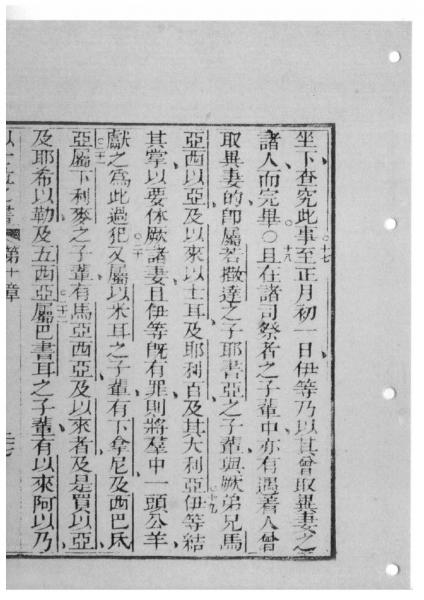 坐下查究此事至正月初一日伊等乃以其曾取異妻之
諸人而完畢○且在諸司祭者之子輩中亦有遇着人曾
取異妻的即屬若撒達之子耶書亞之子輩與厥弟兄馬
亞西以亞及以來以士耳及耶利百及其大利亞伊等結
其掌以要休厥諸妻且伊等既有罪則將羣中一頭公羊
獻之爲此過犯又屬以米耳之子輩有下拿尼及西巴氐
亞屬下利麥之子輩有馬亞西亞及以來者及是買以亞
及耶希以勒及五西亞屬巴書耳之子輩有以來阿以乃
以士拉之書 第十章